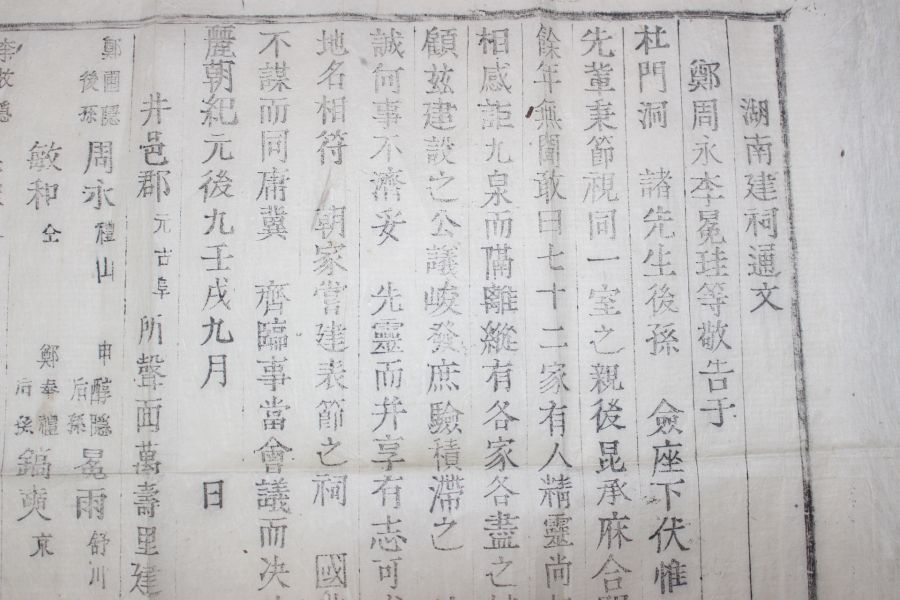 湖南建祠通文
鄭周永李冕珪等敬告于
杜門洞 諸先生後孫 僉座下伏惟
先輩秉節視同一室之親後昆承庥合
餘年無聞敢曰七十二家有人精靈尚
相感詎九泉而隔離縱有各家各盡之
顧玆建設之公議峻發庶驗積滯之
誠何事不濟妥 先靈而幷享有志可
地名相符 朝家嘗建表節之祠 國
不謀而同庸冀 齊臨事當會議而决
麗朝紀元後九壬戌九月 日
井邑郡 元古阜 所聲面萬壽里建
鄭圃隱後孫 周永 禮山 申醇隱后孫 冕雨 舒川
敏和 仝 鄭奉禮后孫 鎬奭 東
李牧隱